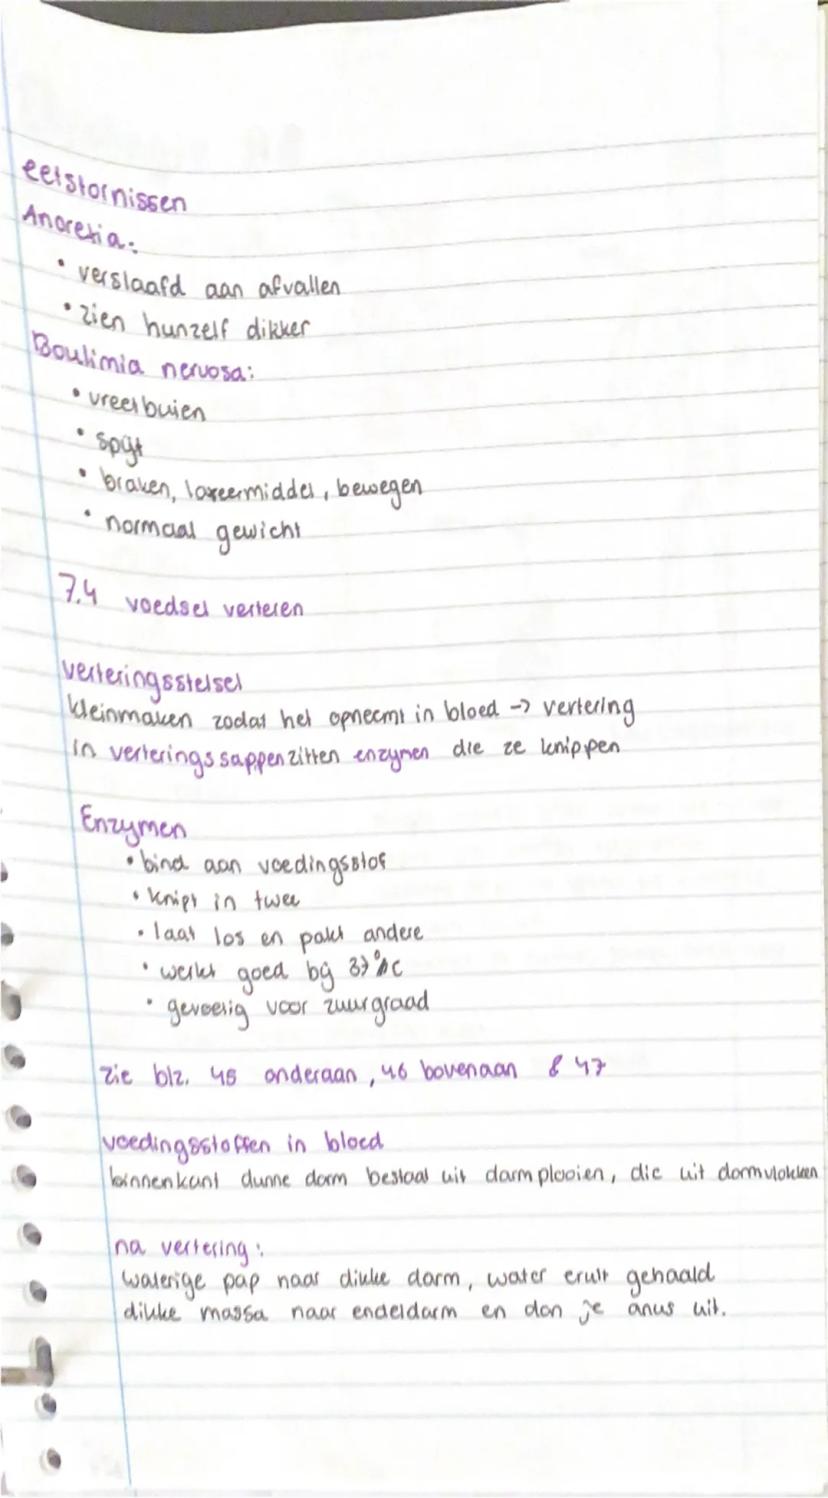 eetstornissen
Anorexia:
• verslaafd aan afvallen
• zien hunzelf dikker
Boulimia nervosa:
• vreetbuien
• spijt
• braken, laxeermiddel, bewegen
• normaal gewicht
7.4 voedsel verteren
verteringsstelsel
kleinmaken zodat het opneemt in bloed -> vertering
in verteringssappen zitten enzymen die ze knippen
Enzymen
• bind aan voedingsstof
• knipt in twee
• laat los en pakt andere
• werkt goed bij 37°C
• gevoelig voor zuurgraad
zie blz. 45 onderaan, 46 bovenaan & 47
voedingsstoffen in bloed
binnenkant dunne darm bestaat uit darmplooien, die uit darmvlokken
na vertering:
waterige pap naar dikke darm, water eruit gehaald
dikke massa naar endeldarm en dan je anus uit.